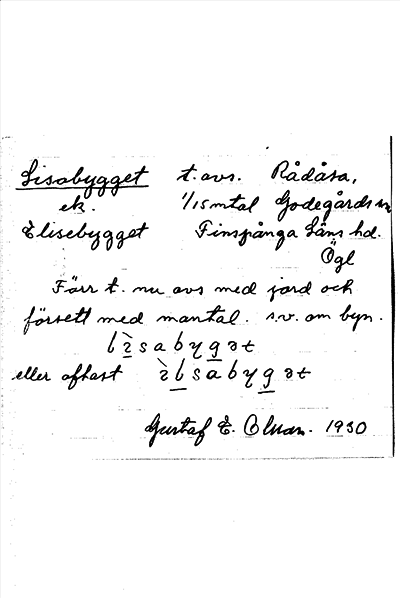 Lisabygget t. avs. Rådåsa,
ek. 1/15 mtal Godegårds sn
Elisebygget Finspånga Läns hd.
Ögl
Förr t. nu avs med jord och
försett med mantal. s.v. om byn.
eller oftast
Gustaf E. 1930